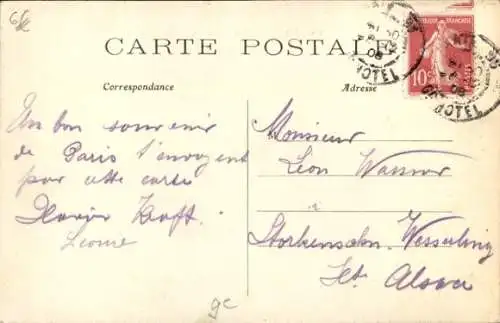 6€
CARTE POSTALE
Correspondance
Adresse
RÉPUBLIQUE FRANÇAISE
10c
GD HOTEL
Un bon souvenir
de Paris t'envoyent
par cette carte
Xavier Kraft.
Monsieur
Léon
Storkensohn. Wesserling
Ht Alsace
gc